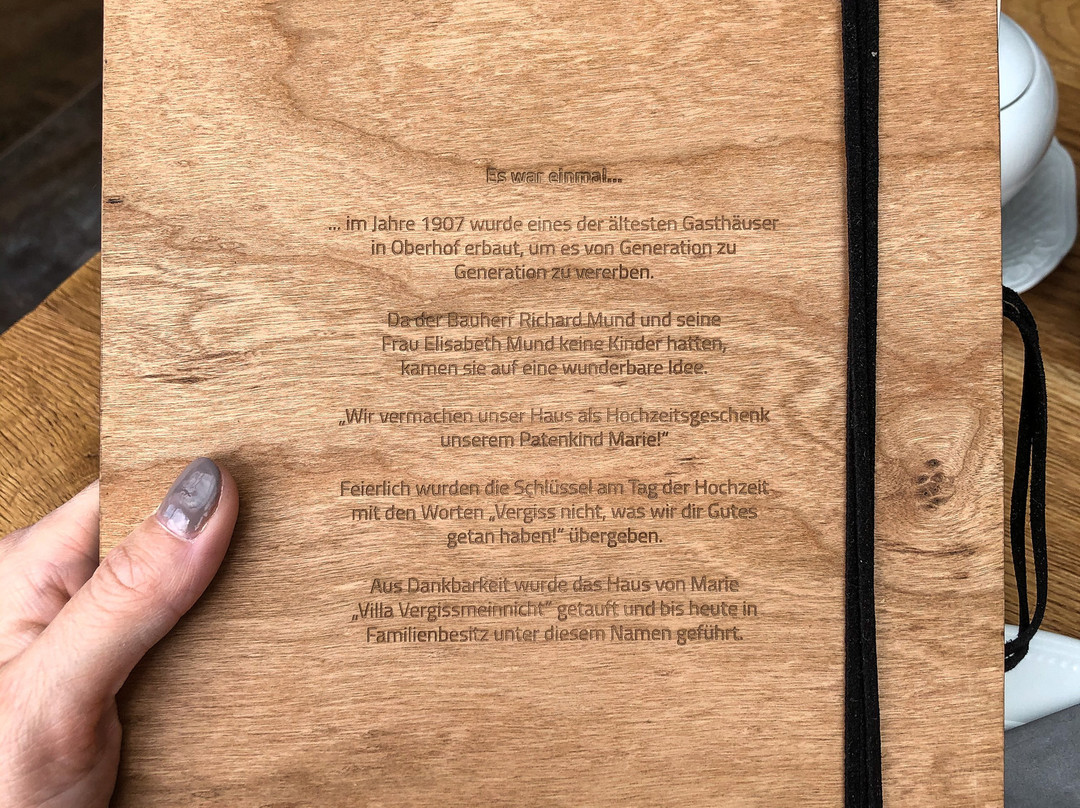 Es war einmal...
... im Jahre 1907 wurde eines der ältesten Gasthäuser
in Oberhof erbaut, um es von Generation zu
Generation zu vererben.
Da der Bauherr Richard Mund und seine
Frau Elisabeth Mund keine Kinder hatten,
kamen sie auf eine wunderbare Idee.
„Wir vermachen unser Haus als Hochzeitsgeschenk
unserem Patenkind Marie!“
Feierlich wurden die Schlüssel am Tag der Hochzeit
mit den Worten „Vergiss nicht, was wir dir Gutes
getan haben!“ übergeben.
Aus Dankbarkeit wurde das Haus von Marie
„Villa Vergissmeinnicht“ getauft und bis heute in
Familienbesitz unter diesem Namen geführt.